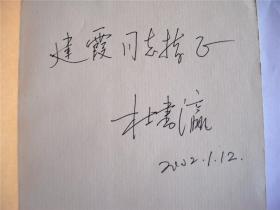 建霞同志指正
杜书瀛
2002.1.12.